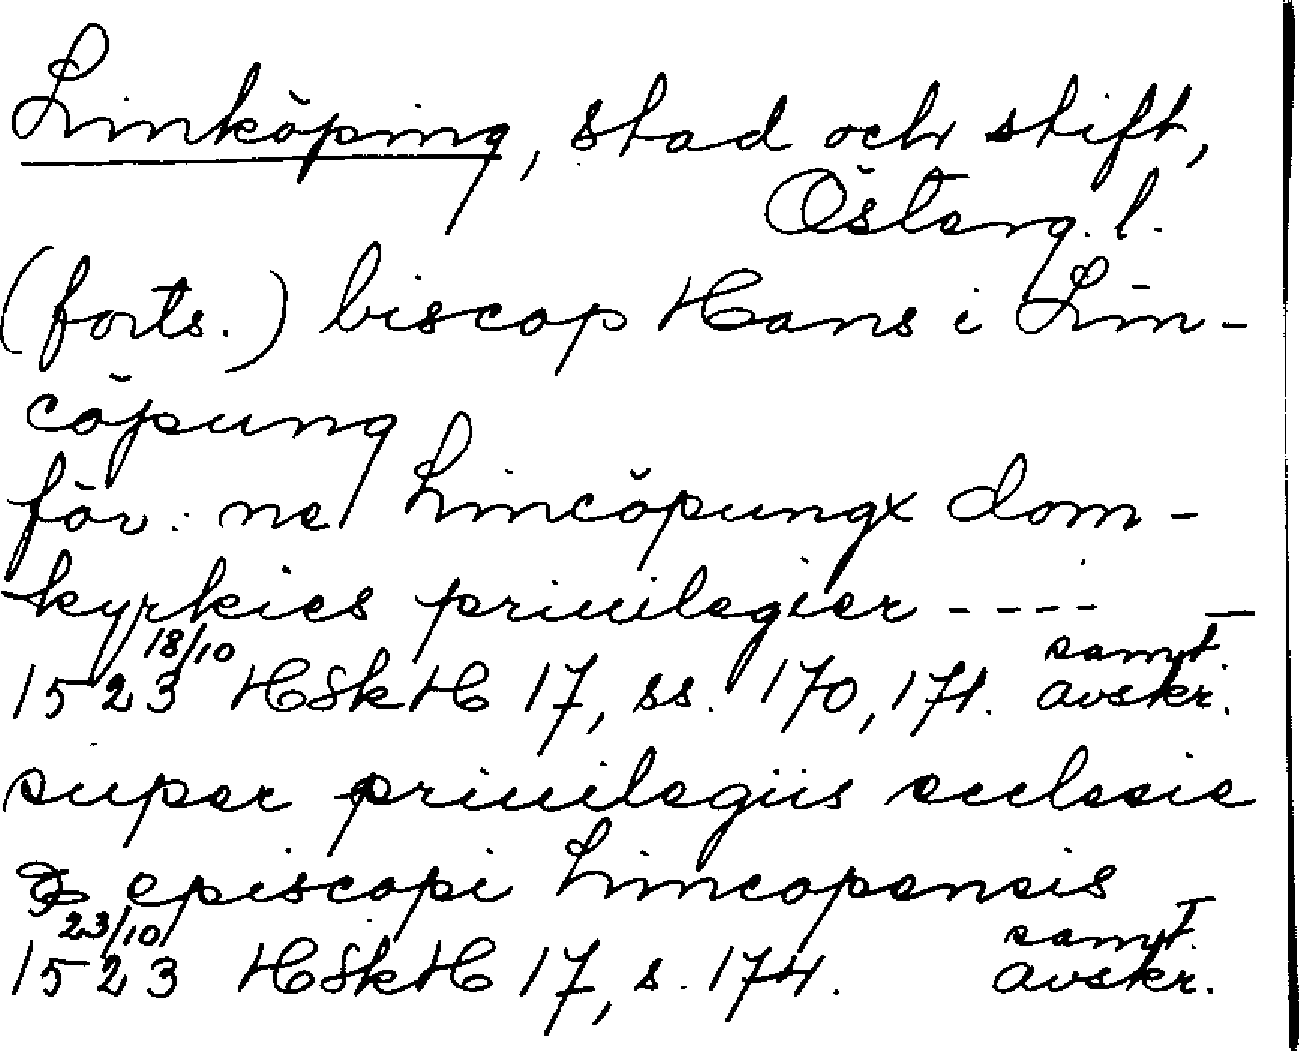 Linköping, stad och stift,
Österg. l.
(forts.) biscop Hans i Lin-
cöpung
för. ne Lincöpungx dom-
kyrkies priuilegier ---- —
18/10 samt.
1523 HSkH 17, ss. 170, 171. avskr.
super priuilegiis ecclesie
& episcopi Lincopensis —
23/10 samt.
1523 HSkH 17, s. 174. avskr.